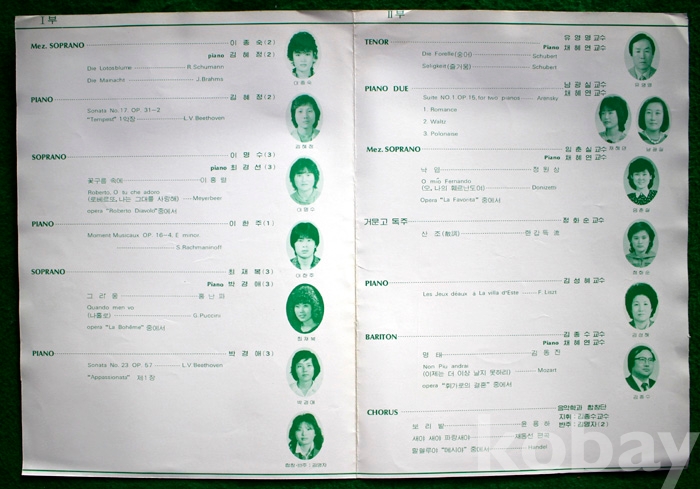 I 부
Mez. SOPRANO 이종숙(2)
piano 김혜정(2)
Die Lotosblume R.Schumann
Die Mainacht J.Brahms
이종숙
PIANO 김혜정(2)
Sonata No.17. OP. 31-2
"Tempest" 1악장 L.V.Beethoven
김혜정
SOPRANO 이명수(3)
piano 최경선(3)
꽃구름 속에 이흥렬
Roberto, O tu che adoro
(로베르토, 나는 그대를 사랑해) Meyerbeer
opera "Roberto Diavolo" 중에서
이명수
PIANO 이한주(1)
Moment Musicaux OP. 16-4, E minor
S.Rachmaninoff
이한주
SOPRANO 최재봉(3)
Piano 박경애(3)
그리움 홍난파
Quando men vo
(나홀로) G.Puccini
opera "La Bohême" 중에서
최재봉
PIANO 박경애(3)
Sonata No. 23 OP. 57 L.V.Beethoven
"Appassionata" 제1장
박경애
II 부
TENOR 유영명 교수
Piano 채혜연 교수
Die Forelle(숭어) Schubert
Seligkeit(즐거움) Schubert
유영명
PIANO DUE 남광실 교수
채혜연 교수
Suite NO.1.OP.15,for two pianos Arensky
1. Romance
2. Waltz
3. Polonaise
채혜연
남광실
Mez. SOPRANO 임춘실 교수
Piano 채혜연 교수
낙엽
O mio Fernando
(오, 나의 훼르난도야) Donizetti
Opera "La Favorita" 중에서
임춘실
거문고 독주 정화순 교수
산조(散調) 한갑득류
정화순
PIANO 김성혜 교수
Les Jeux déaux á La villa d'Este F.Liszt
김성혜
BARITON 김종수 교수
Piano 채혜연 교수
명태
Non Piu andrai
(이제는 더 이상 날지 못하리) Mozart
opera "휘가로의 결혼" 중에서
김종수
CHORUS 음악학과 합창단
지휘: 김종수교수
보리밭 윤용하 반주: 김명지(2)
새야 새야 파랑새야 채동선 편곡
할렐루야 "메시아" 중에서 Handel
kobay